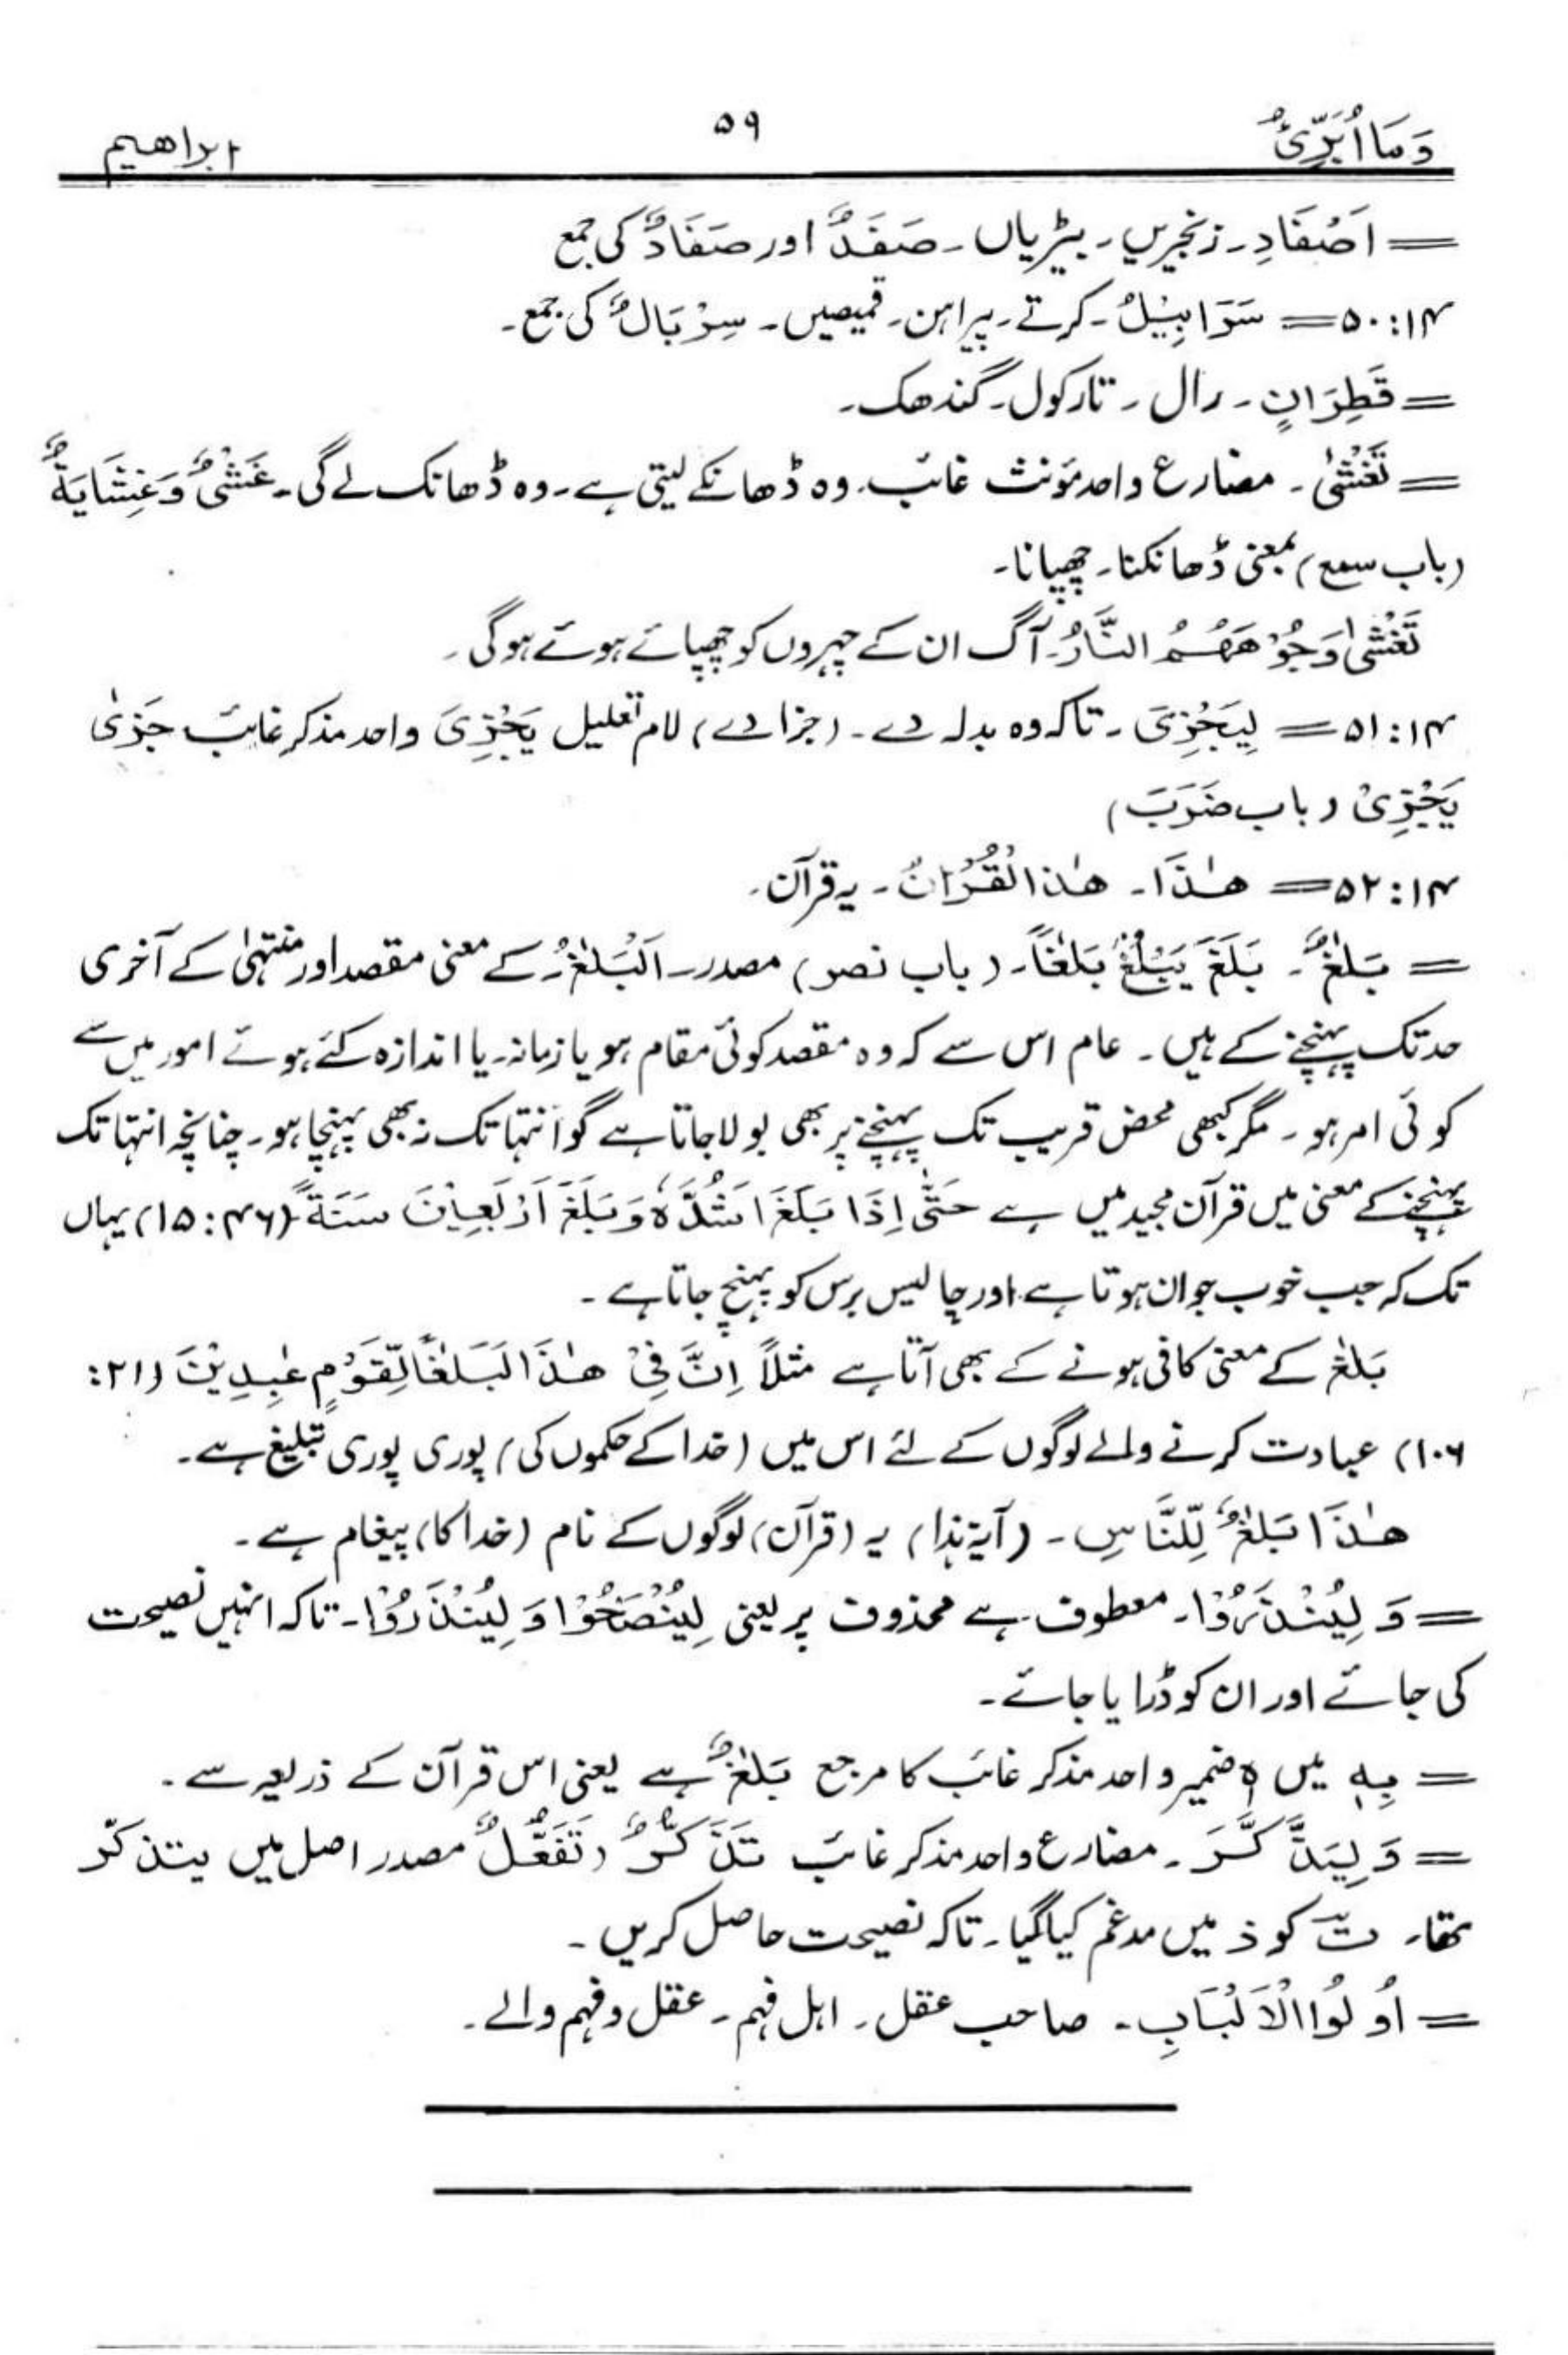 وَمَا اُبَرِّئُ ۵۹ ابراھیم
= اَصْفَادِ۔ زنجیریں۔ بیڑیاں۔ صَفَدٌ اور صَفَادٌ کی جمع
۱۴:۵۰ = سَرَابِیْلُ۔ کرتے۔ پیراہن۔ قمیصیں۔ سِرْبَالٌ کی جمع۔
= قَطِرَانٍ۔ رال۔ تارکول۔ گندھک۔
= تَغْشٰی۔ مضارع واحد مؤنث غائب۔ وہ ڈھانکے لیتی ہے۔ وہ ڈھانک لے گی۔ غَشْیٌ وَغِشَایَةٌ
(باب سمع) بمعنی ڈھانکنا۔ چھپانا۔
تَغْشٰی وُجُوْھَھُمُ النَّارُ۔ آگ ان کے چہروں کو چھپائے ہوئے ہوگی۔
۱۴:۵۱ = لِیَجْزِیَ۔ تاکہ وہ بدلہ دے۔ (جزا دے) لام تعلیل یَجْزِیَ واحد مذکر غائب جَزٰی
یَجْزِیْ (باب ضَرَبَ)
۱۴:۵۲ = ھٰذَا۔ ھٰذا الْقُرْاٰنُ۔ یہ قرآن۔
= بَلٰغٌ۔ بَلَغَ یَبْلُغُ بَلٰغًا۔ (باب نصر) مصدر۔ اَلْبَلٰغُ۔ کے معنی مقصد اور منتہٰی کے آخری
حد تک پہنچنے کے ہیں۔ عام اس سے کہ وہ مقصد کوئی مقام ہو یا زمانہ۔ یا اندازہ کئے ہوئے امور میں سے
کوئی امر ہو۔ مگر کبھی محض قریب تک پہنچنے پر بھی بولا جاتا ہے گو انتہا تک نہ بھی پہنچا ہو۔ چنانچہ انتہا تک
پہنچنے کے معنی میں قرآن مجید میں ہے حَتّٰی اِذَا بَلَغَ اَشُدَّہٗ وَبَلَغَ اَرْبَعِیْنَ سَنَةً (۴۶:۱۵) یہاں
تک کہ جب خوب جوان ہوتا ہے اور چالیس برس کو پہنچ جاتا ہے۔
بَلٰغ کے معنی کافی ہونے کے بھی آتا ہے مثلاً اِنَّ فِیْ ھٰذَا لَبَلٰغًا لِّقَوْمٍ عٰبِدِیْنَ (۲۱:
۱۰۶) عبادت کرنے والے لوگوں کے لئے اس میں (خدا کے حکموں کی) پوری پوری تبلیغ ہے۔
ھٰذَا بَلٰغٌ لِّلنَّاسِ۔ (آیۃ ہذا) یہ (قرآن) لوگوں کے نام (خدا کا) پیغام ہے۔
= وَلِیُنْذَرُوْا۔ معطوف ہے محذوف پر یعنی لِیُنْصَحُوْا وَلِیُنْذَرُوْا۔ تاکہ انہیں نصیحت
کی جائے اور ان کو ڈرایا جائے۔
= بِہٖ میں ہٖ ضمیر واحد مذکر غائب کا مرجع بَلٰغٌ ہے یعنی اس قرآن کے ذریعہ سے۔
= وَلِیَذَّکَّرَ۔ مضارع واحد مذکر غائب تَذَکُّرٌ (تَفَعُّلٌ مصدر اصل میں یتذکّر
تھا۔ تَ کو ذ میں مدغم کیا گیا۔ تاکہ نصیحت حاصل کریں۔
= اُولُوا الْاَلْبَابِ۔ صاحب عقل۔ اہل فہم۔ عقل و فہم والے۔